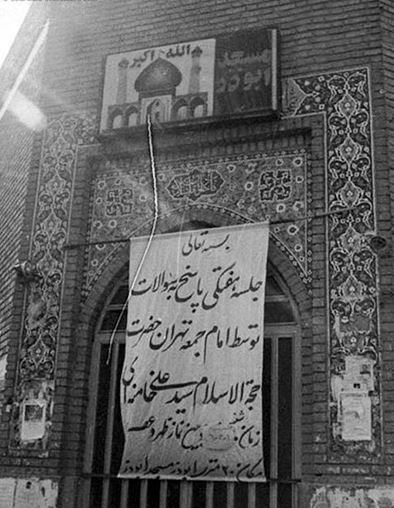 الله اکبر
مسجد
ابوذر
بسمه تعالی
جلسه هفتگی پاسخ به سوالات
توسط امام جمعه تهران حضرت
حجة الاسلام سید علی خامنه‌ای
زمان: بین نماز ظهر و عصر
مکان: ۲۰ متری ابوذر مسجد ابوذر